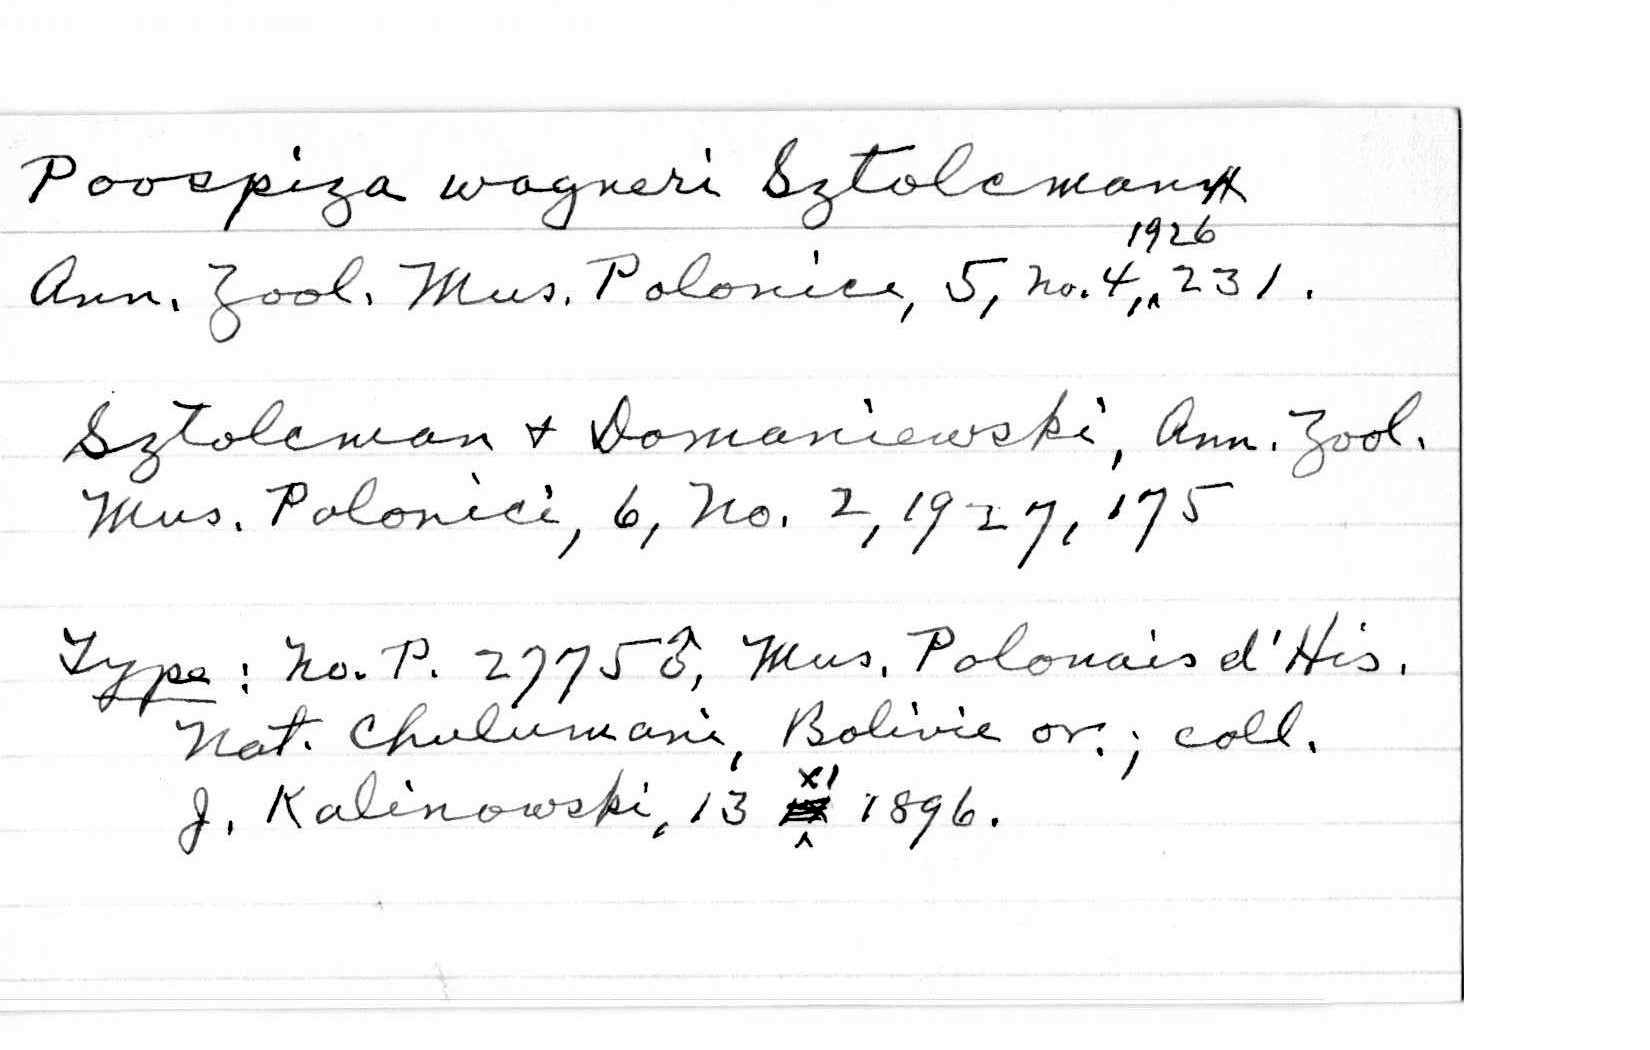 Poospiza wagneri Sztolcman
Ann. Zool. Mus. Polonici, 5, no. 4, 1926 231.
Sztolcman + Domaniewski, Ann. Zool.
Mus. Polonici, 6, no. 2, 1927, 175
Type: no. P. 2775♂, Mus. Polonais d'His.
Nat. Chulumani, Bolivie or.; coll.
J. Kalinowski, 13 XI 1896.